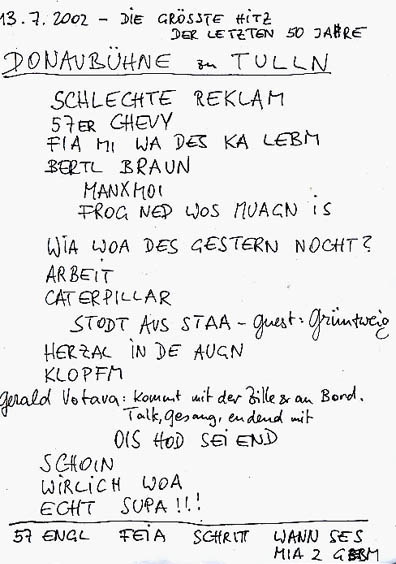 13.7.2002 - DIE GRÖSSTE HITZ
DER LETZTEN 50 JAHRE
DONAUBÜHNE zu TULLN
SCHLECHTE REKLAM
57ER CHEVY
FIA MI WA DES KA LEBM
BERTL BRAUN
MANXMOI
FROG NED WOS MUAGN IS
WIA WOA DES GESTERN NOCHT?
ARBEIT
CATERPILLAR
STODT AUS STAA - guest: Grüntweig
HERZAL IN DE AUGN
KLOPFM
Gerald Votava: kommt mit der Zille an Bord.
Talk, Gesang, endend mit
OIS HOD SEI END
SCHOIN
WIRLICH WOA
ECHT SUPA!!!
57 ENGL FEIA SCHRITT WANN SES
MIA 2 GEBM